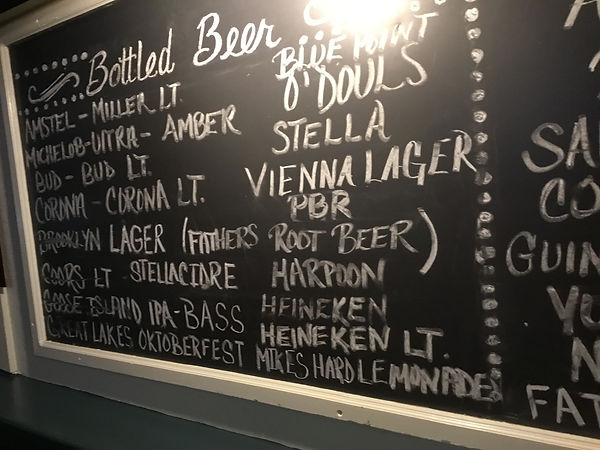 Bottled Beer
AMSTEL - MILLER LT.
MICHELOB - ULTRA - AMBER
BUD - BUD LT.
CORONA - CORONA LT.
BROOKLYN LAGER (FATHERS ROOT BEER)
COORS LT STELLA CIDRE
GOOSE ISLAND IPA - BASS
GREAT LAKES OKTOBERFEST
BLUE POINT
O'DOULS
STELLA
VIENNA LAGER
PBR
HARPOON
HEINEKEN
HEINEKEN LT.
MIKES HARD LEMONADES
SA
CO
GUIN
YU
N
FAT